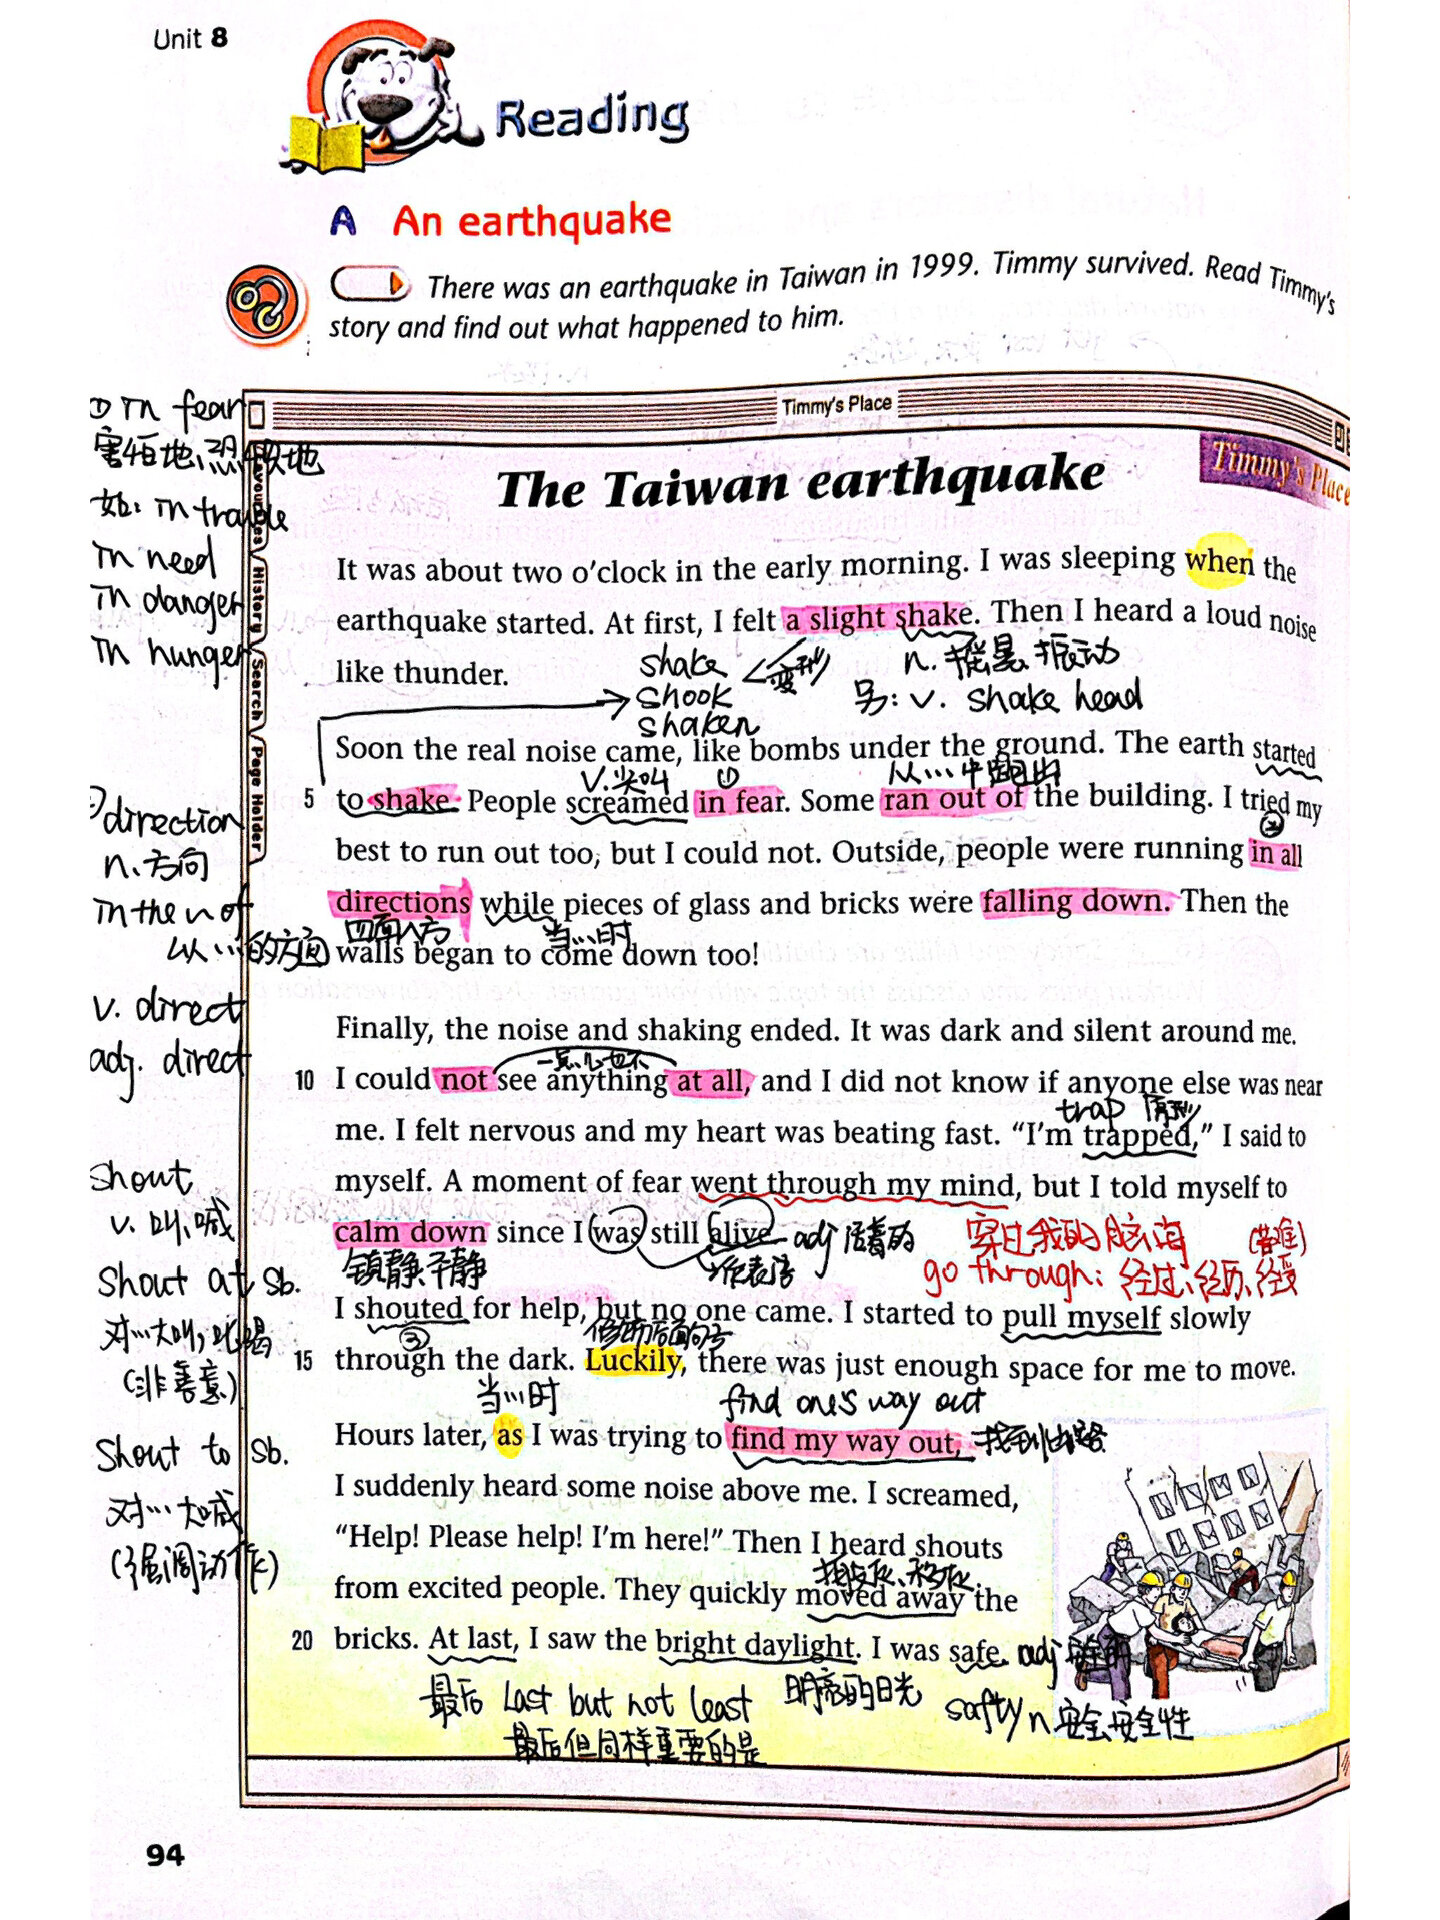 Unit 8
Reading
A An earthquake
There was an earthquake in Taiwan in 1999. Timmy survived. Read Timmy's
story and find out what happened to him.
Timmy's Place
Timmy's Place
The Taiwan earthquake
It was about two o'clock in the early morning. I was sleeping when the
earthquake started. At first, I felt a slight shake. Then I heard a loud noise
like thunder.
shake
shook
shaken
变形
n. 摇晃、振动
另: v. shake head
Soon the real noise came, like bombs under the ground. The earth started
v.尖叫
①
从…中跑出
5 to shake. People screamed in fear. Some ran out of the building. I tried my
②
best to run out too, but I could not. Outside, people were running in all
directions while pieces of glass and bricks were falling down. Then the
四面八方
当…时
walls began to come down too!
Finally, the noise and shaking ended. It was dark and silent around me.
一点儿也不
10 I could not see anything at all, and I did not know if anyone else was near
trap 原形
me. I felt nervous and my heart was beating fast. "I'm trapped," I said to
myself. A moment of fear went through my mind, but I told myself to
calm down since I was still alive
adj 活着的
镇静、平静
作表语
穿过我的脑海
(苦难)
go through: 经过、经历、经受
I shouted for help, but no one came. I started to pull myself slowly
③
修饰后面句子
15 through the dark. Luckily, there was just enough space for me to move.
当…时
find one's way out
Hours later, as I was trying to find my way out,
找到出路
I suddenly heard some noise above me. I screamed,
"Help! Please help! I'm here!" Then I heard shouts
from excited people. They quickly moved away the
20 bricks. At last, I saw the bright daylight. I was safe.
adj 安全的
最后 Last but not least
最后但同样重要的是
明亮的日光
safty n.安全、安全性
① in fear
害怕地、恐惧地
如: in trouble
in need
in danger
in hunger
Favourites
History
Search
Page Holder
direction
n、方向
in the n of
从…的方向
v. direct
adj. direct
shout
v. 叫、喊
shout at sb.
对…大叫, 吆喝
(非善意)
shout to sb.
对…大喊
(强调动作)
94